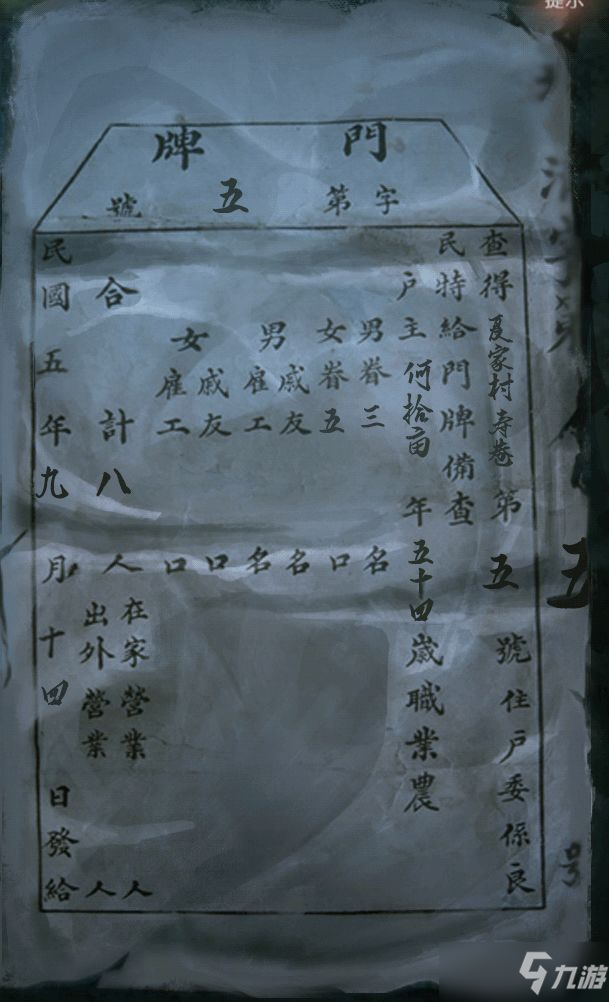 提示
門牌
字第五號
查得夏家村寺巷第五號住戶委係良
民特給門牌備查
户主何拾亩年五十四歲職業農
男眷三名
女眷五口
男
戚友名
雇工名
女
戚友口
雇工口
合計八人
在家營業人
出外營業人
民國五年九月十四日發給
五
号
九游